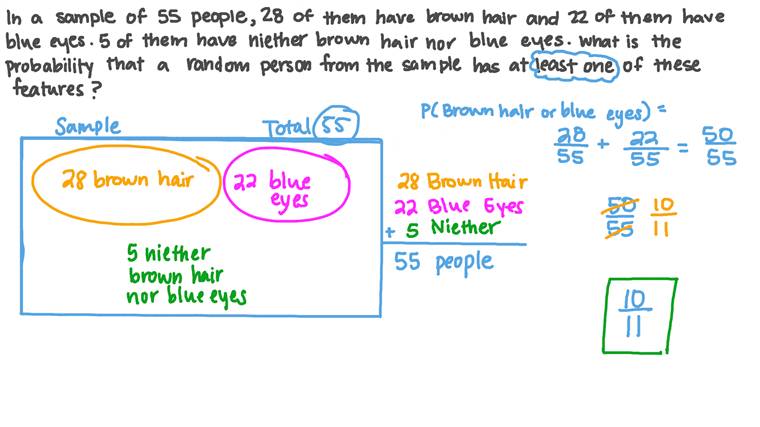 In a sample of 55 people, 28 of them have brown hair and 22 of them have
blue eyes. 5 of them have niether brown hair nor blue eyes. What is the
probability that a random person from the sample has at least one of these
features?
Sample Total 55
28 brown hair
22 blue
eyes
5 niether
brown hair
nor blue eyes
28 Brown Hair
22 Blue Eyes
+ 5 Niether
55 people
P(Brown hair or blue eyes) =
28/55 + 22/55 = 50/55
50/55 10/11
10/11